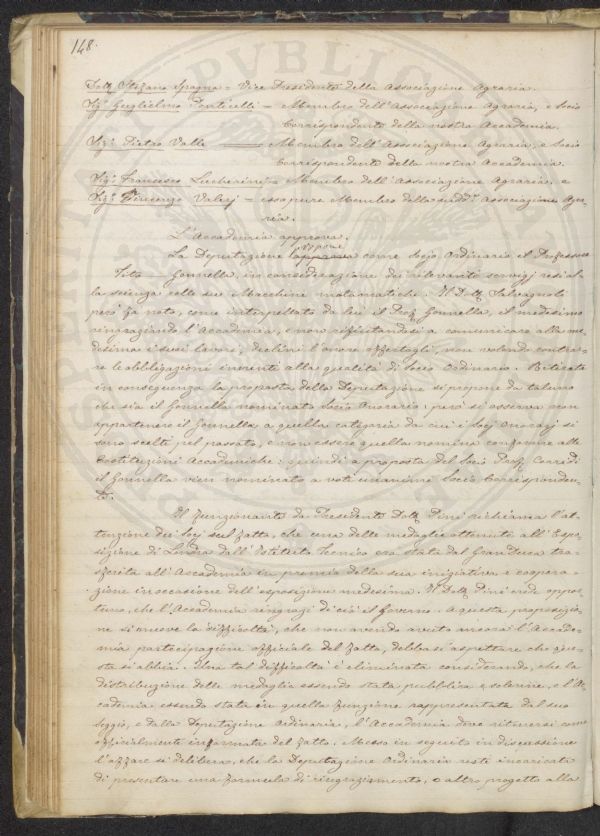 148.
Dott. Stefano Spagna = Vice Presidente della Associazione Agraria.
Sig. Guglielmo Ponticelli = Membro dell'Associazione Agraria, e Socio
Corrispondente della nostra Accademia.
Sig. Pietro Valle = Membro dell'Associazione Agraria, e Socio
Corrispondente della nostra Accademia.
Sig. Francesco Lucherini = Membro dell'Associazione Agraria, e
Sig. Vincenzo Valerj = esso pure Membro della sudd. Associazione Agra-
ria.
L'Accademia approva.
propone
La Deputazione approva come Socio Ordinario il Professore
Tito Gonnella, in considerazione dei rilevanti servigj resi al-
la scienza colle sue Macchine matematiche. Il Dott. Salvagnoli
però fa noto, come interpellato da lui il Prof. Gonnella, il medesimo
ringraziando l'Accademia, e non rifiutandosi a comunicare alla me-
desima i suoi lavori, declini l'onore offertogli, non volendo contrar-
re le obbligazioni inerenti alla qualità di Socio Ordinario. Ritirata
in conseguenza la proposta della Deputazione si propone da taluno
che sia il Gonnella nominato Socio Onorario: però si osserva non
appartenere il Gonnella a quella categoria da cui i Socj onorarj si
sono scelti pel passato, e non essere quella nomina conforme alle
Costituzioni Accademiche: quindi a proposta del Socio Prof. Corridi
il Gonnella vien nominato a voti unanimi Socio Corrisponden-
te.
Il funzionante da Presidente Dott. Pini richiama l'at-
tenzione dei Socj sul fatto, che una delle medaglie ottenute all'Espo-
sizione di Londra dall'Istituto Tecnico era stata dal Gran Duca tra-
sferita all'Accademia in premio della sua iniziativa, e coopera-
zione in occasione dell'esposizione medesima. Il Dott. Pini crede oppor-
tuno, che l'Accademia ringrazi di ciò il Governo. A questa proposizio-
ne si muove la difficoltà, che non avendo avuta ancora l'Accade-
mia partecipazione officiale del fatto, debbasi aspettare che que-
sta si abbia. Una tal difficoltà è eliminata considerando, che la
distribuzione delle medaglie essendo stata pubblica e solenne, e l'Ac-
cademia essendo stata in quella funzione rappresentata dal suo
Seggio, e dalla Deputazione Ordinaria, l'Accademia deve ritenersi come
officialmente informata del fatto. Messo in seguito in discussione
l'affare si delibera, che la Deputazione Ordinaria resti incaricata
di presentare una formula di ringraziamento, o altro progetto alla